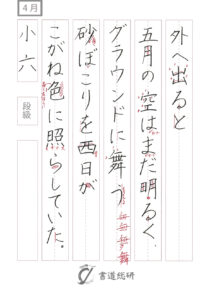 4月
外へ出ると
五月の空はまだ明るく、
グラウンドに舞う
砂ぼこりを西日が
こがね色に照らしていた。
小六
段級
書道総研